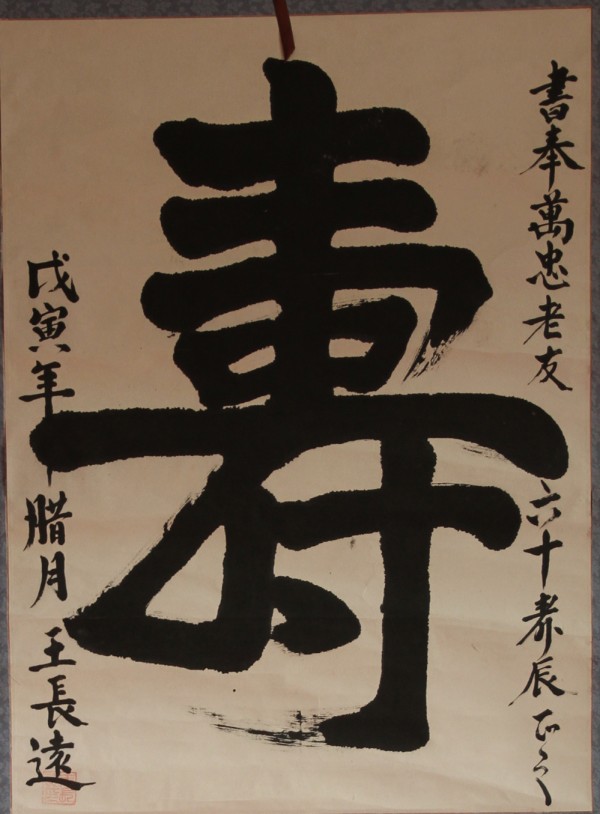 書奉萬忠老友
六十寿辰正之
壽
戊寅年腊月 王長遠